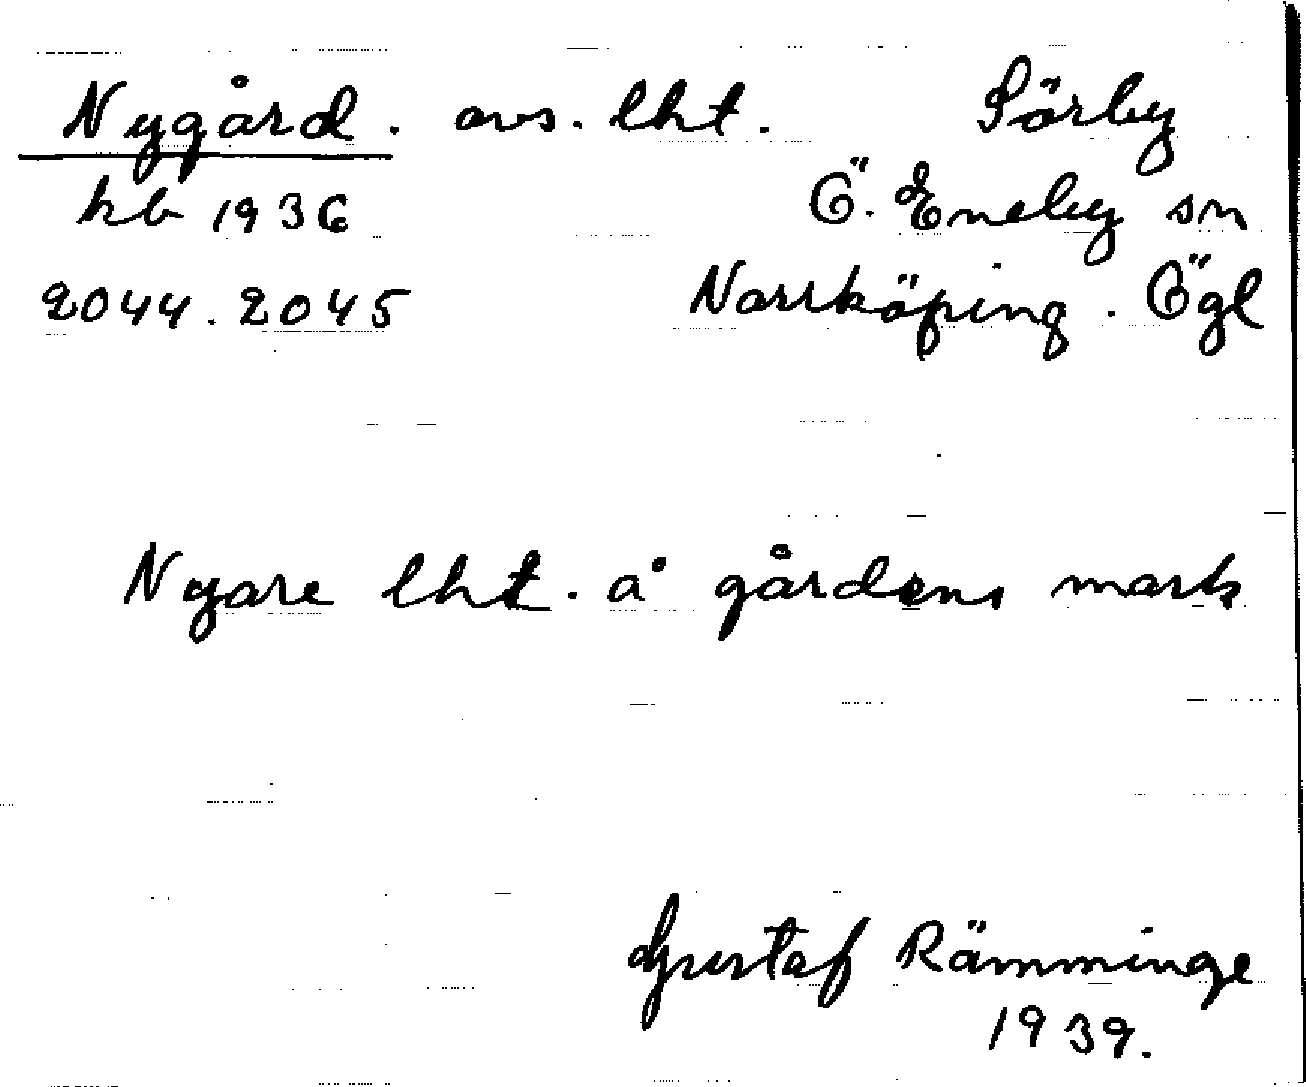 Nygård. avs. lht. Sörby
hb 1936 Ö. Eneby sn
2044. 2045 Norrköping. Ögl
Nyare lht. å gårdens mark
Gustaf Rämminge
1939.